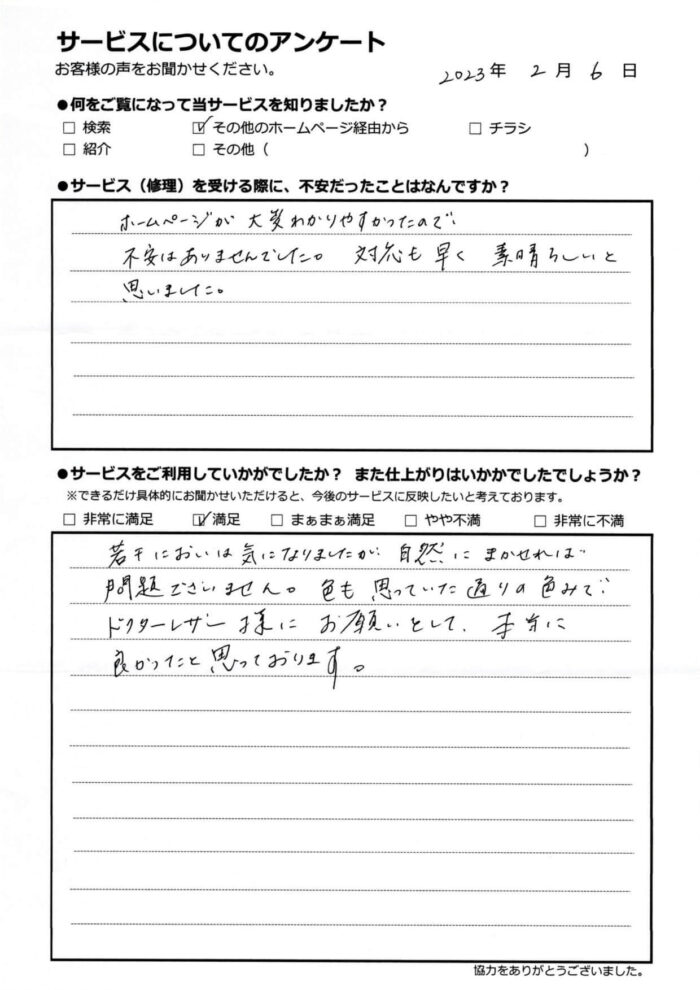 サービスについてのアンケート
お客様の声をお聞かせください。
2023年 2月 6日
●何をご覧になって当サービスを知りましたか？
□ 検索 ☑ その他のホームページ経由から □ チラシ
□ 紹介 □ その他（ ）
●サービス（修理）を受ける際に、不安だったことはなんですか？
ホームページが 大変わかりやすかったので、
不安はありませんでした。 対応も早く 素晴らしいと
思いました。
●サービスをご利用していかがでしたか？ また仕上がりはいかかでしたでしょうか？
※できるだけ具体的にお聞かせいただけると、今後のサービスに反映したいと考えております。
□ 非常に満足 ☑ 満足 □ まぁまぁ満足 □ やや不満 □ 非常に不満
若干においは気になりましたが、自然にまかせれば
問題ございません。色も思っていた通りの色みで、
ドクターレザー様にお願いをして、本当に
良かったと思っております。
協力をありがとうございました。